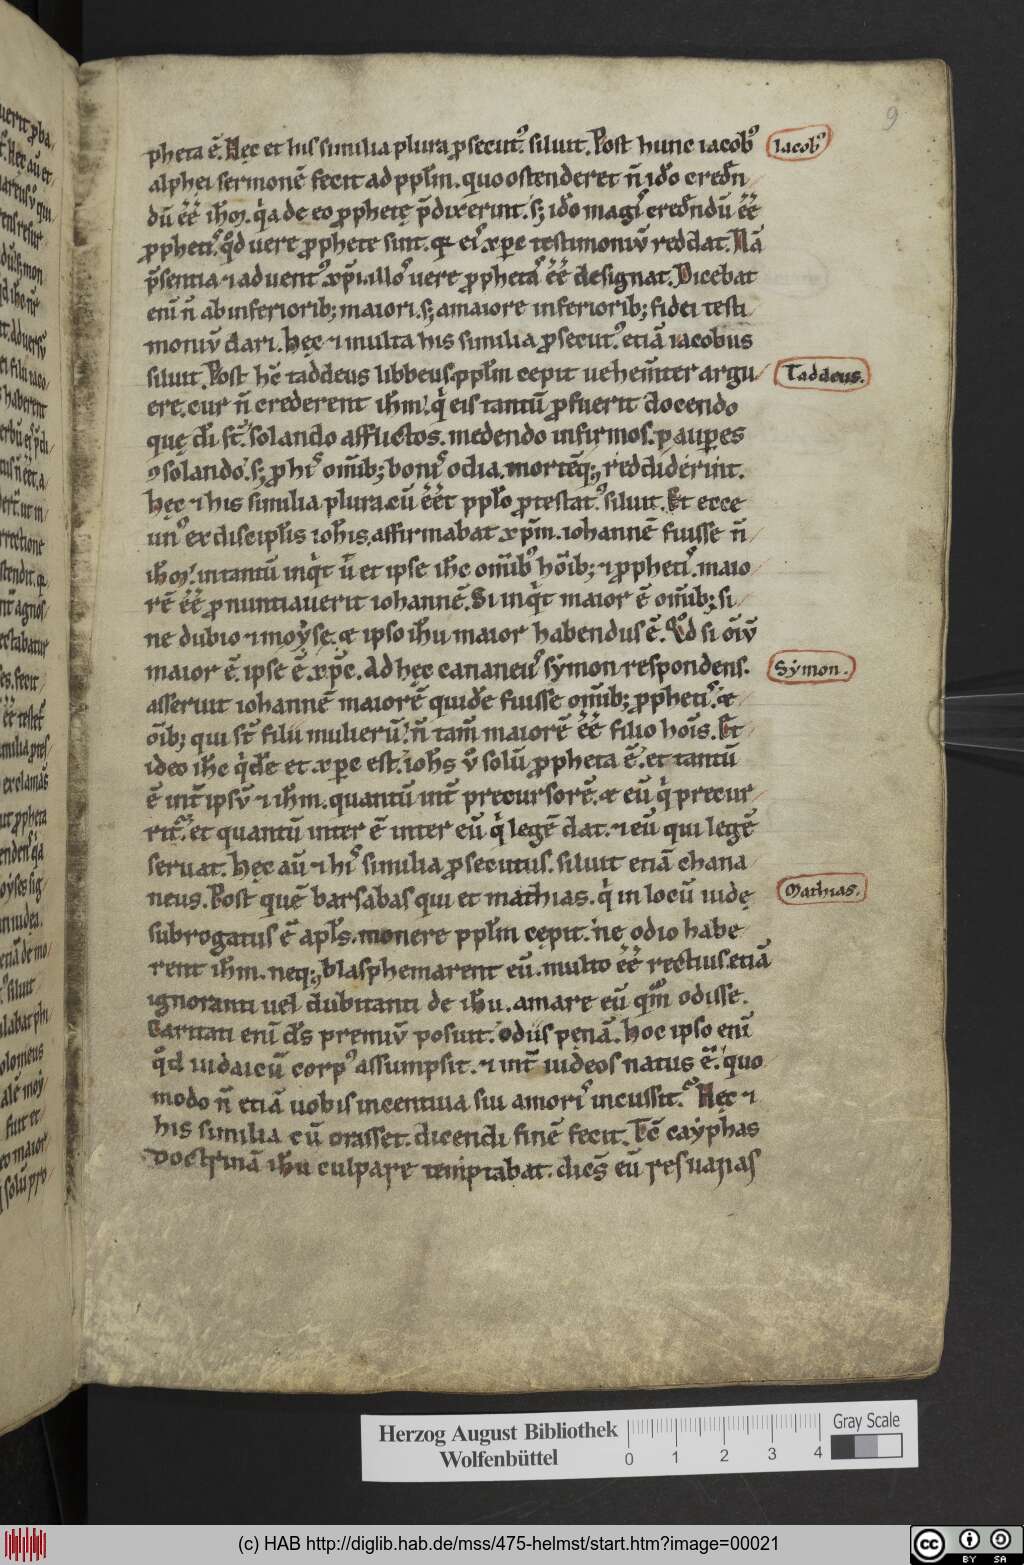 9
pheta ē. Hęc et his similia plura ꝓsecut᷒ siluit. Post hunc iacob᷒
Iacob᷒
alphei sermonē fecit ad ppl̄m. quo ostenderet n̄ iđo credn̄
dū ēē ih̄m. q̇a de eo ꝓphetę p̄dixerint. sꝫ iđo magi᷒ credn̄dū ēē
ꝓpheti᷒. qđ uere ꝓphete sint. qꝛ ei᷒ xp̄c testimoniū reddat. Nā
p̄sentia ⁊ aduent᷒ xp̄i allo᷒ uere ꝓpheta᷒ ēē designat. Dicebat
eni n̄ ab inferiorib; maiori. sꝫ a maiore inferiorib; fidei testi
moniū dari. hęc ⁊ multa his similia ꝓsecut᷒ etiā iacobus
siluit. Post hc̄ taddeus libbeus. ppl̄m cepit uehem̄ter argu
Taddeus.
ere. cur n̄ crederent ih̄m. q̇ eis tantū ꝓfuerit docendo
quę dī st̄. solando afflictos. medendo infirmos. pauꝑes
ꝯsolando. sꝫ ꝓ hi᷒ om̄ib; boni᷒ odia. mortēqꝫ reddiderint.
hęc ⁊ his similia plura cū ēēt ppl̄o ꝓtestat᷒ siluit. Et ecce
un᷒ ex discipl̄is ioh̄is. affirmabat xp̄m. iohannē fuisse n̄
ih̄m. in tantū inq̇t ū et ipse ih̄c om̄ib᷒ hōib; ⁊ ꝓpheti᷒. maio
rē ēē ꝓnuntiauerit iohannē. Si inq̇t maior ē om̄ib; si
ne dubio ⁊ moẏse. & ipso ih̄u maior habendus ē. Qđ si oīū
maior ē. ipse ē. xp̄c. Ad hęc cananeu᷒ sẏmon respondens.
Sẏmon.
asseruit iohannē maiorē quidē fuisse om̄ib; ꝓpheti᷒. &
oīb; qui st̄ filii mulierū. n̄ tam̄ maiorē ēē filio hoīs. Et
ideo ih̄c q̇de et xp̄c est. ioh̄s ū solū ꝓpheta ē. et tantū
ē int̄ ipsū ⁊ ih̄m. quantū int̄ precursorē. & eū q̇ precur
rit. et quantū inter ē inter eū q̇ legē dat. ⁊ eū qui legē
seruat. hęc aū ⁊ hi᷒ similia ꝓsecutus. siluit etiā chana
neus. Post quē barsabas qui et mathias. q̇ in locū iudę
Mathias.
subrogatus ē apl̄s. monere ppl̄m cępit. ne odio habe
rent ih̄m. neqꝫ blasphemarent eū. multo ēē rectius etiā
ignoranti uel dubitanti de ih̄u. amare eū qm̄ odisse.
Caritati enī ds̄ premiū posuit. odiis pęnā. hoc ipso enī
qđ iudaicū corp᷒ assumpsit. ⁊ int̄ iudeos natus ē. quo
modo n̄ etiā uobis incentiua sui amori᷒ incussit. Hęc ⁊
his similia cū orasset. dicendi finē fecit. Tc̄ caẏphas
doctrinā ih̄u culpare temptabat. dicēs eū res uarias
Herzog August Bibliothek
Wolfenbüttel
0 1 2 3 4
Gray Scale
(c) HAB http://diglib.hab.de/mss/475-helmst/start.htm?image=00021
cc BY SA